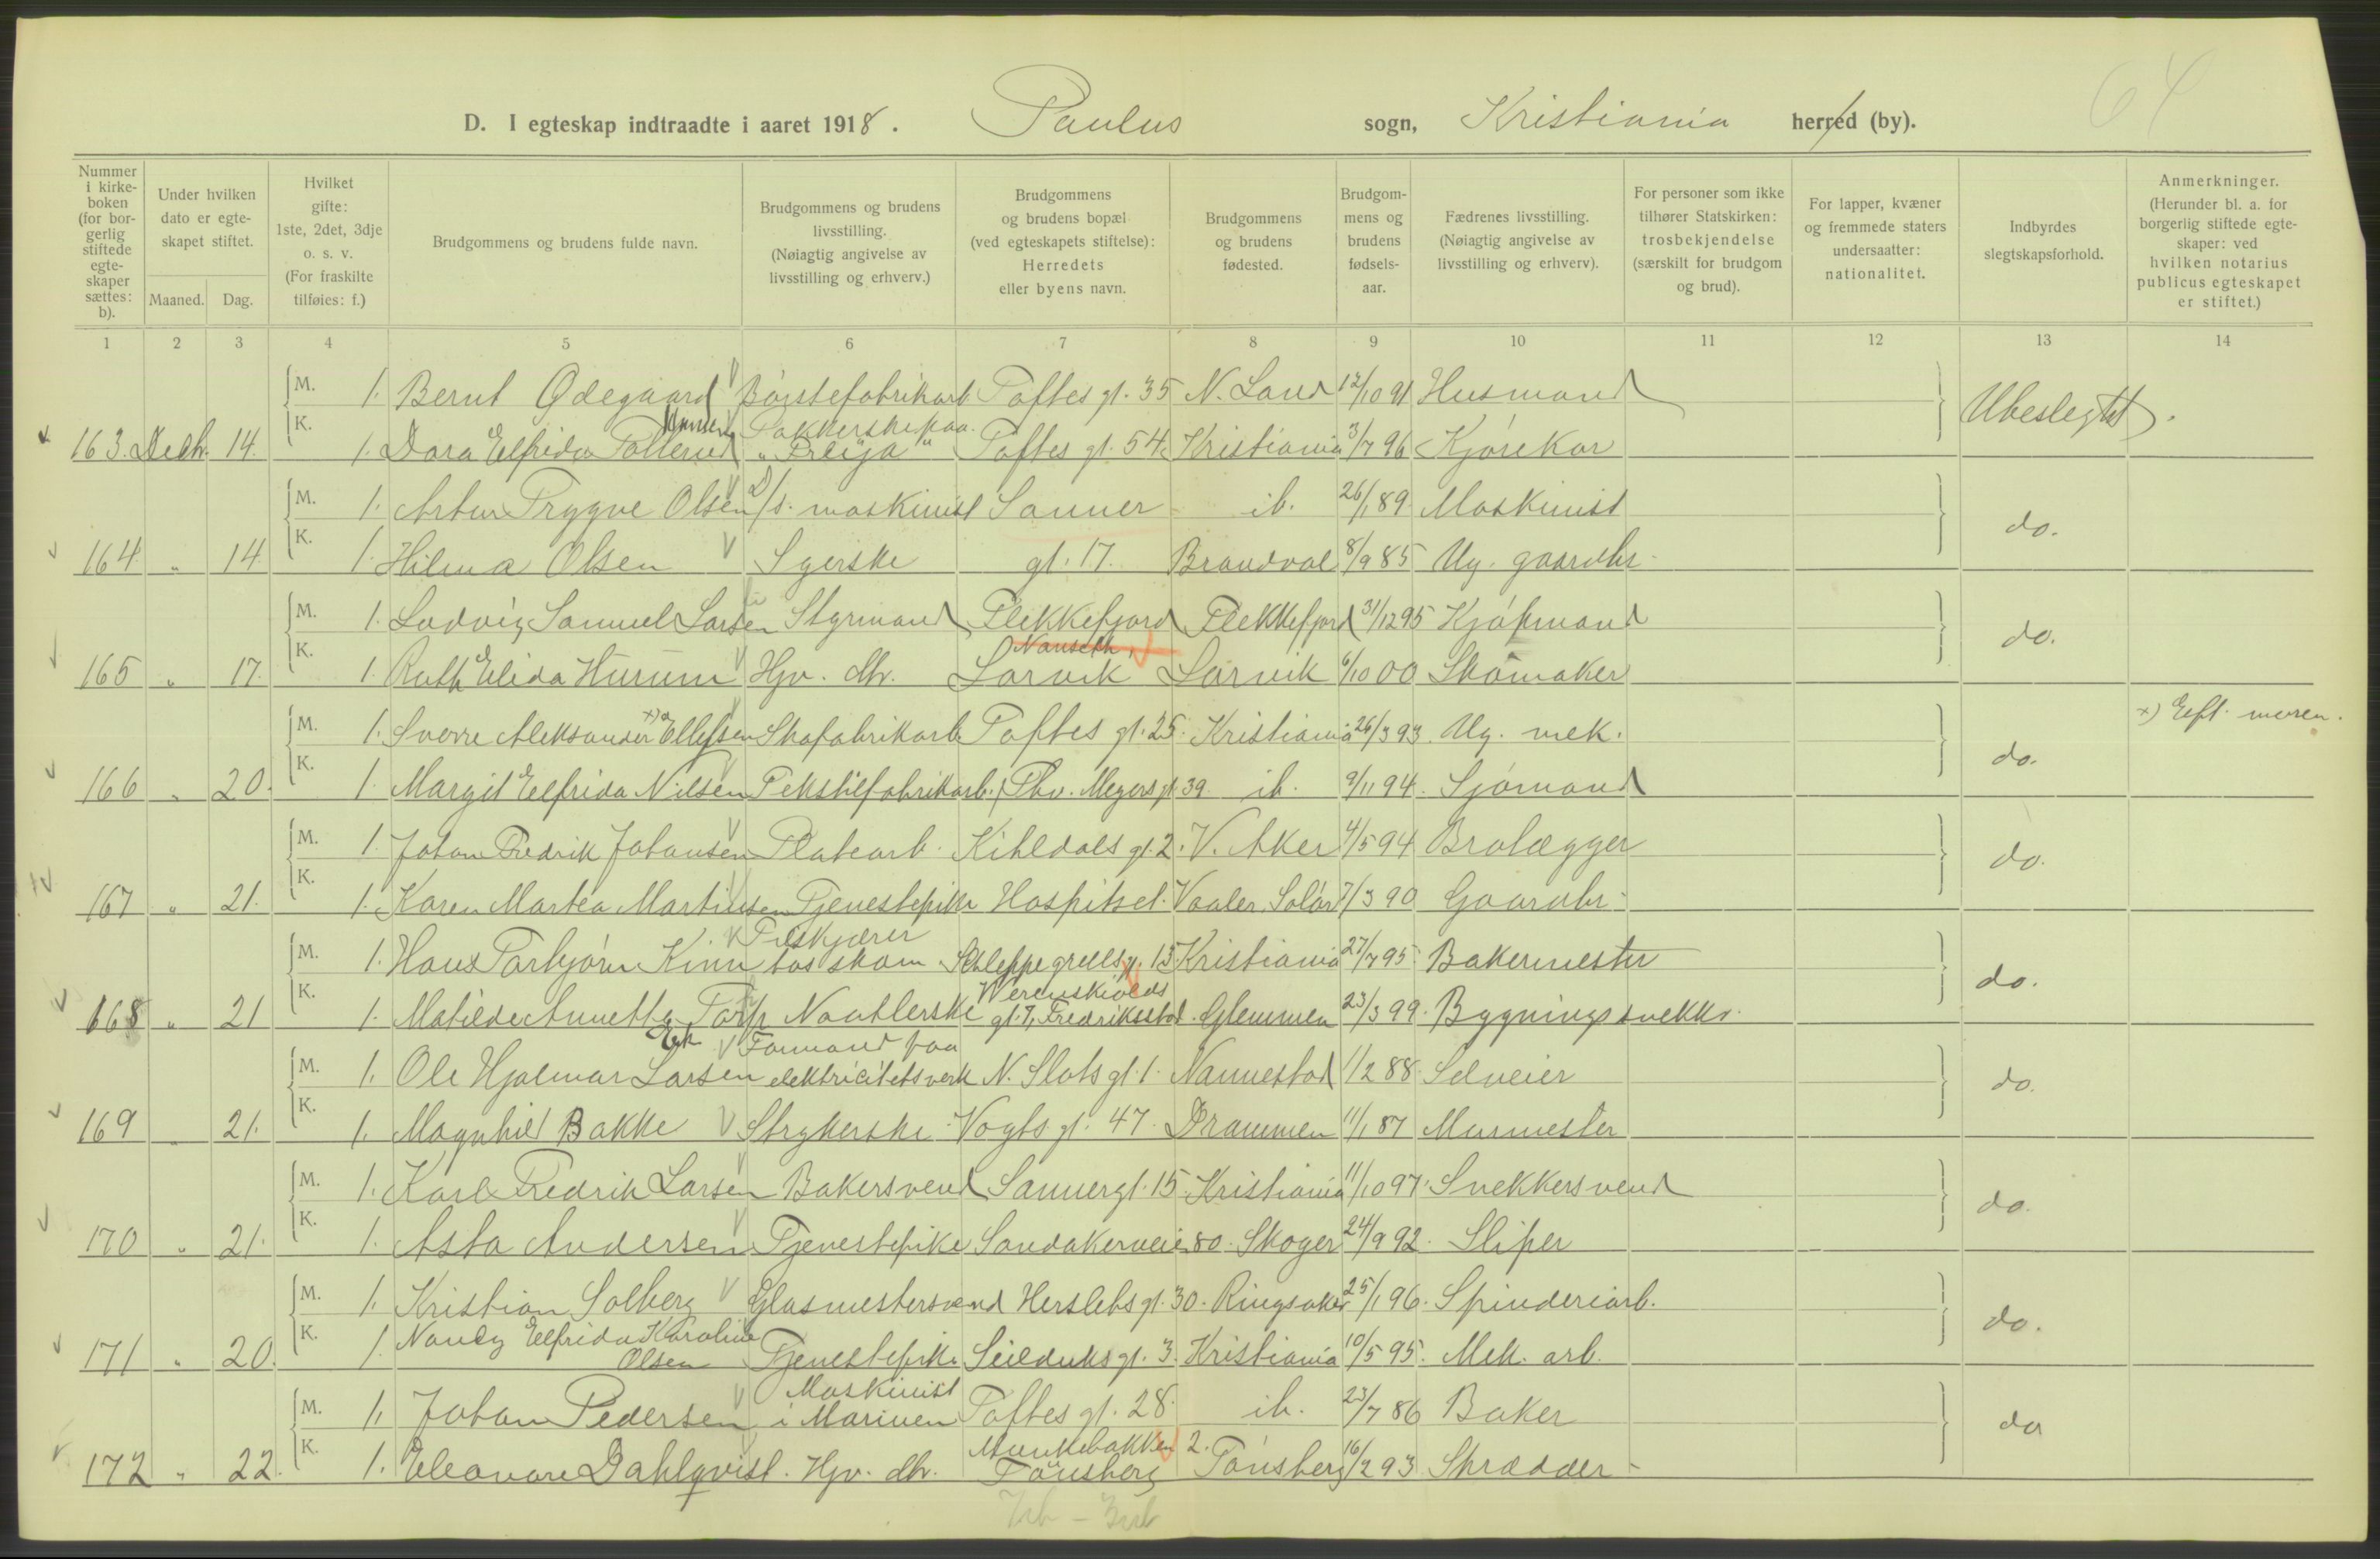 64
D. I egteskap indtraadte i aaret 1918. Paulus sogn, Kristiania herred (by).
Nummer i kirkeboken (for borgerlig stiftede egteskaper sættes: b).
Under hvilken dato er egteskapet stiftet.
Maaned. Dag.
Hvilket gifte: 1ste, 2det, 3dje o. s. v. (For fraskilte tilføies: f.)
Brudgommens og brudens fulde navn.
Brudgommens og brudens livsstilling. (Nøiagtig angivelse av livsstilling og erhverv.)
Brudgommens og brudens bopæl (ved egteskapets stiftelse): Herredets eller byens navn.
Brudgommens og brudens fødested.
Brudgommens og brudens fødselsaar.
Fædrenes livsstilling. (Nøiagtig angivelse av livsstilling og erhverv).
For personer som ikke tilhører Statskirken: trosbekjendelse (særskilt for brudgom og brud).
For lapper, kvæner og fremmede staters undersaatter: nationalitet.
Indbyrdes slegtskapsforhold.
Anmerkninger. (Herunder bl. a. for borgerlig stiftede egteskaper: ved hvilken notarius publicus egteskapet er stiftet.)
1 2 3 4 5 6 7 8 9 10 11 12 13 14
M. 1. Bernt Ødegaard Børstefabrikarb. Toftes gt. 35 N. Land 12/10 91 Husmand Ubeslegtet.
163. Decbr. 14. K. 1. Dora Elfrida Pollerud Hansen Pakkerske paa "Freija" Toftes gt. 54. Kristiania 3/7 96 Kjørekar
M. 1. Artur Trygve Olsen D/s. maskinist Sanner ib. 26/1 89. Maskinist do.
164. " 14. K. 1. Hilma Olsen Syerske gt. 17. Brandval 8/9 85 Ug. gaardbr.
M. 1. Ludvig Samuel Larsen Styrmand Flekkefjord Flekkefjord 31/12 95 Kjøpmand do.
165 " 17. K. 1. Ruth Elida Hurum Hjv. dtr. Nanseth, Larvik Larvik 6/10 00 Skomaker
M. 1. Sverre Aleksander x) Ellefsen Skofabrikarb. Toftes gt. 25. Kristiania 26/3 93. Ug. mek. do. x) Eft. moren.
166 " 20. K. 1. Margit Elfrida Nilsen Tekstilfabrikarb. Thv. Meyers gt. 39. ib. 9/11 94. Sjømand
M. 1. Johan Fredrik Johansen Platearb. Kihldals gt. 2. V. Aker 4/5 94 Brolægger do.
167 " 21. K. 1. Karen Martea Martinsen Tjenestepike Hospitset. Vaaler, Solør 7/3 90 Gaardbr.
M. 1. Hans Torbjørn Kinn Tilskjærer Schleppegrells g. 13 Kristiania 27/7 95. Bakermester do.
168 " 21 K. 1. Matilde Annetta Torp Naatlerske Werenskiolds gt. 7, Fredrikstad. Glemmen 23/3 99. Bygningssnekker.
M. 1. Ole Hjalmar Larsen Formand paa elektricitetsverk N. Slots gt. 1. Nannestad 1/2 88. Selveier do.
169 " 21. K. 1. Magnhild Bakke Strykerske Vogts gt. 47. Drammen 11/1 87 Murmester
M. 1. Karl Fredrik Larsen Bakersvend Sannergt. 15. Kristiania 11/10 97. Snekkersvend do.
170 " 21. K. 1. Asta Andersen Tjenestepike Sandakerveien 80. Skoger 24/9 92. Sliper
M. 1. Kristian Solberg Glasmestersvend Herslebs gt. 30. Ringsaker 25/1 96. Spinderiarb. do.
171 " 20. K. 1. Nancy Elfrida Karoline Olsen Tjenestepike Seilduks gt. 3. Kristiania 10/5 95. Mek. arb.
M. 1. Johan Pedersen Maskinist i Marinen Toftes gt. 28. ib. 23/7 86 Baker do
172 " 22. K. 1. Eleonore Dahlqvist. Hjv. dtr. Munkebakken 2. Tønsberg Tønsberg 16/2 93 Skrædder